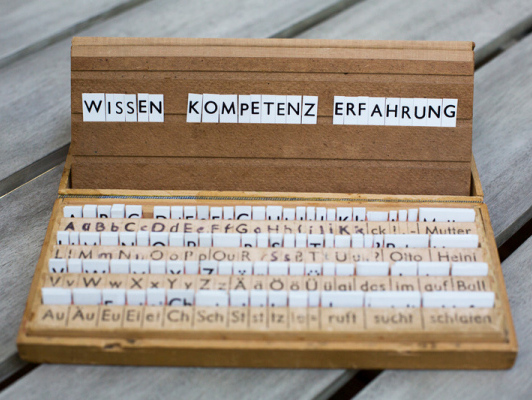 WISSEN KOMPETENZ ERFAHRUNG
Aa Bb Cc Dd Ee Ff Gg Hh Ii Jj Kk ck ! - Mutter
Ll Mm Nn Oo Pp Qu Rr Ss ß Tt Uu ? Otto Heini
Vv Ww Xx Yy Zz Ää Öö Üü al des im auf Ball
Au Äu Eu Ei ei Ch Sch St st tz ie ruft sucht schlafen